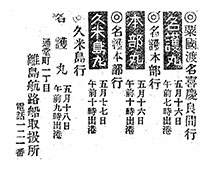 ◎粟國渡名喜慶良間行
名護丸 五月十六日
午後十時出港
◎名護本部行
本部丸 五月十六日
午前十時出港
◎名護本部行
久米島丸 五月十七日
午前十時出港
◎久米島行
名護丸 五月十八日
午前九時出港
通堂町二丁目
離島航路船取扱所
電話一二一番